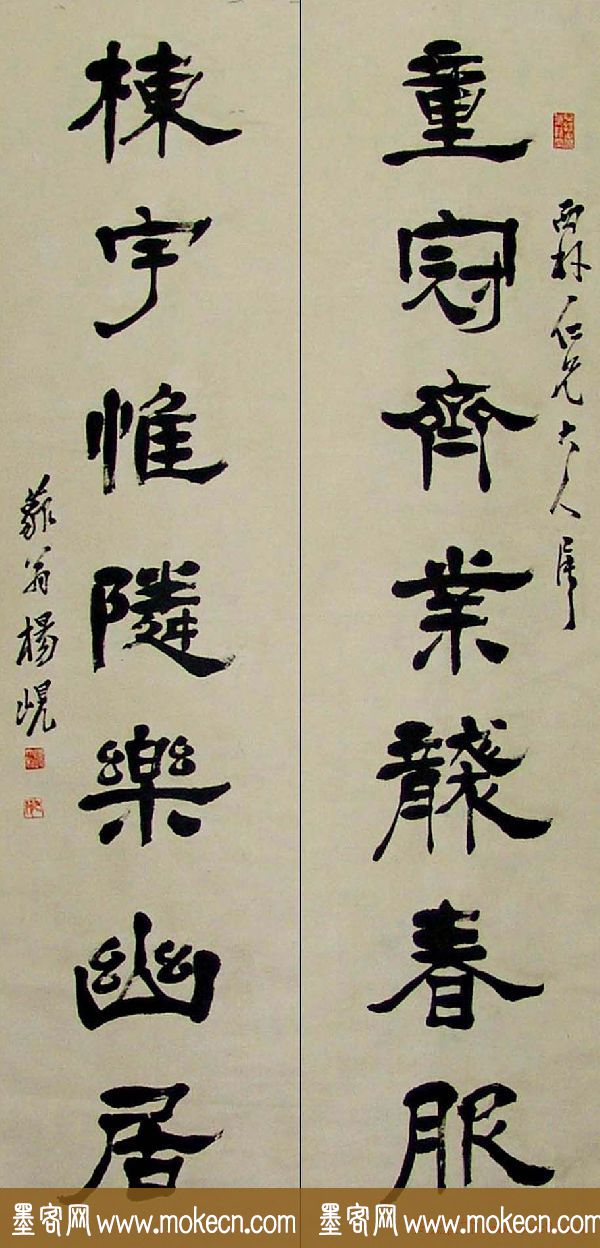 西林仁兄大人屬
童冠齊業襲春服
棟宇惟隣樂幽居
藐翁楊峴
墨客网 www.mokecn.com
墨客网 www.mokecn.com